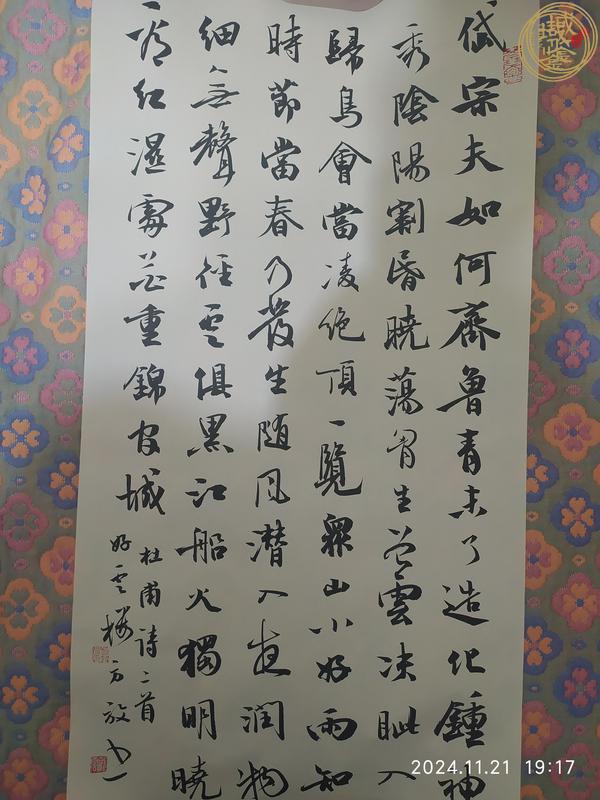 岱宗夫如何齊魯青未了造化鍾神
秀陰陽割昏曉蕩胷生曾雲决眦入
歸鳥會當凌絕頂一覽眾山小好雨知
時節當春乃發生随風潛入夜潤物
細無聲野徑雲俱黑江船火獨明曉
看紅濕處花重錦官城
杜甫詩二首
好雲樓方放書
2024.11.21 19:17